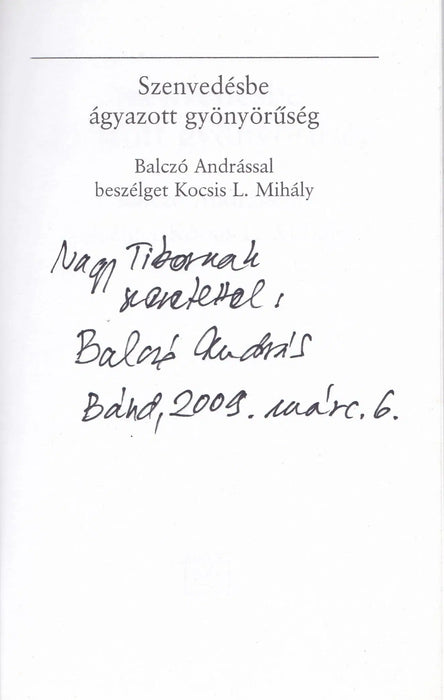 Szenvedésbe
ágyazott gyönyörűség
Balczó Andrással
beszélget Kocsis L. Mihály
Nagy Tibornak
szeretettel:
Balczó András
Bánd, 2009. márc. 6.